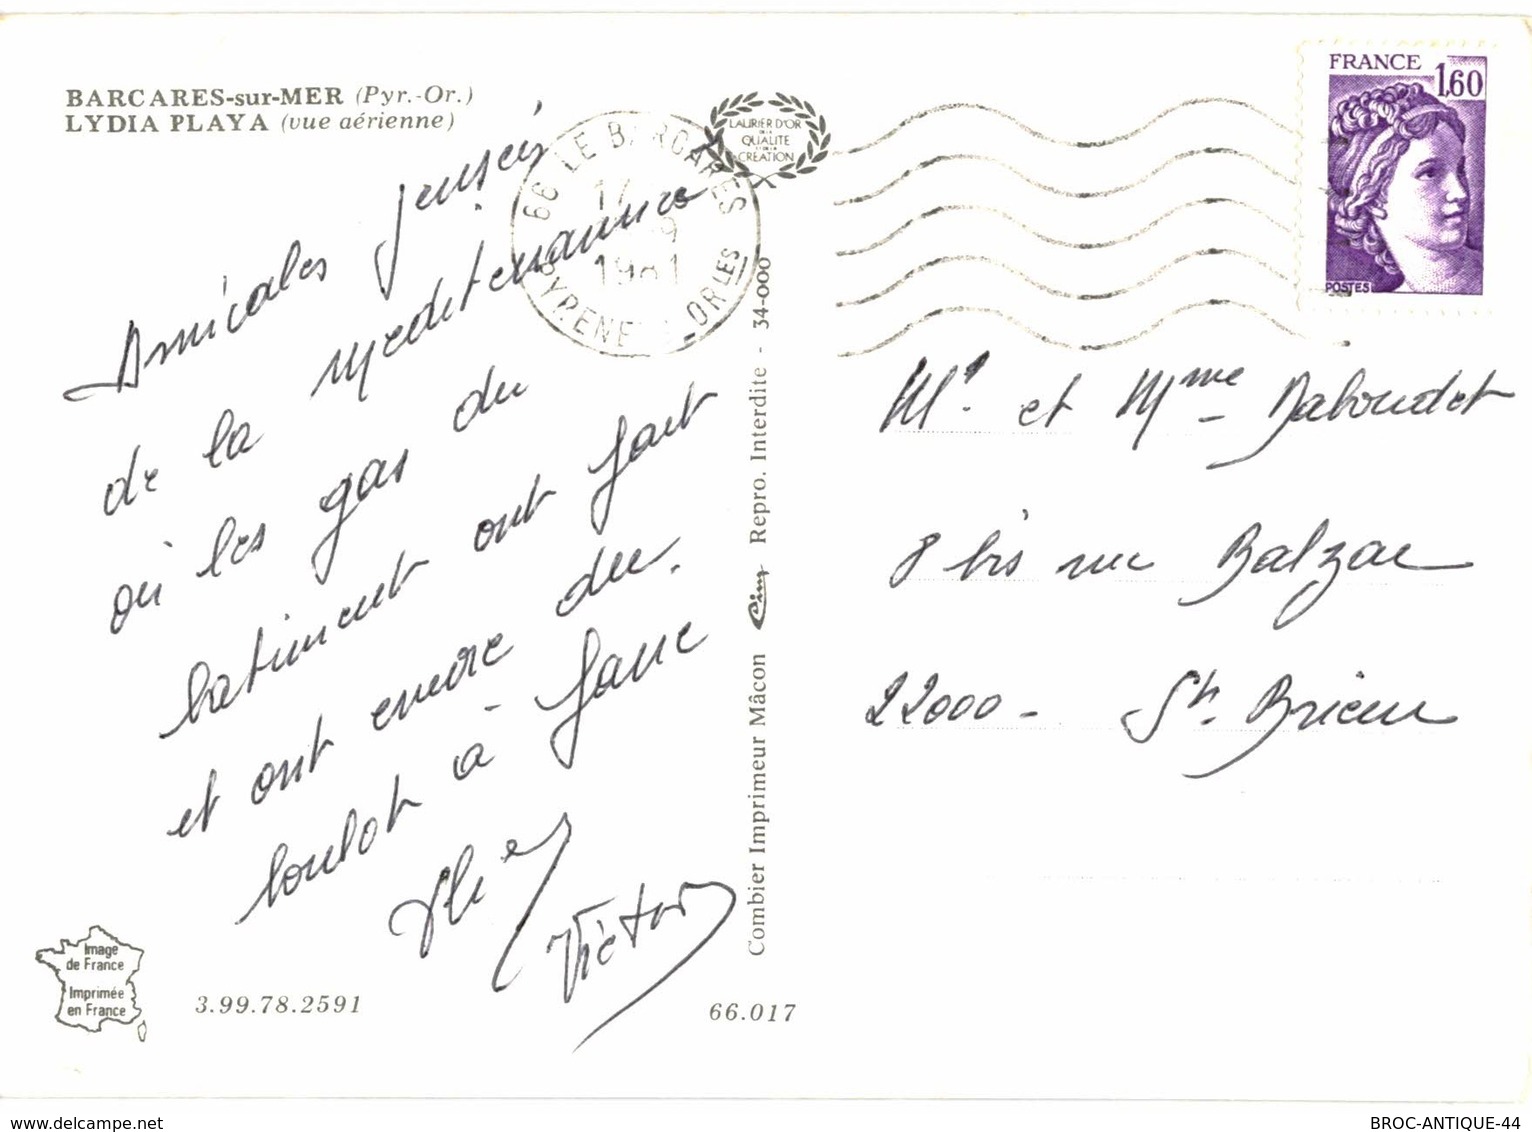 BARCARES-sur-MER (Pyr.-Or.)
LYDIA PLAYA (vue aérienne)
Amicales pensées
de la mediterrannée
où les gas du
batiment ont fait
et ont encore du
boulot à faire
Victor
Image
de France
Imprimée
en France
3.99.78.2591
66.017
66 LE BARCARES
17
9
1981
PYRENEES-ORLES
LAURIER D'OR
DE LA
QUALITE
ET DE LA
CREATION
Combier Imprimeur Mâcon Cim Repro. Interdite - 34-000
FRANCE 1,60
POSTES
Mr. et Mme Daboudet
8 bis rue Balzac
22000 - St. Brieuc
BROC-ANTIQUE-44